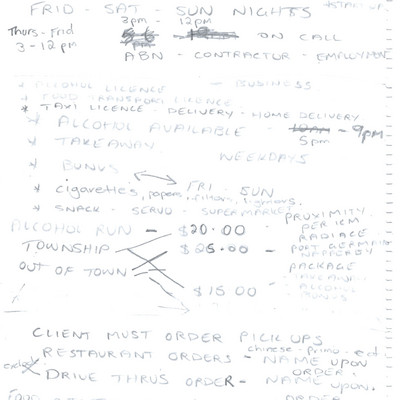 FRID - SAT - SUN NIGHTS
3pm - 12pm
Thurs - Frid
ON CALL
3 - 12pm
ABN - CONTRACTOR - EMPLOYMENT
* ALCOHOL LICENCE - BUSINESS
* FOOD TRANSPORT LICENCE
* TAXI LICENCE - DELIVERY - HOME DELIVERY
* ALCOHOL AVAILABLE - 10am - 9pm
* TAKEAWAY 5pm
WEEKDAYS
* BONUS
FRI - SUN
* cigarettes, papers, filters, lighters.
* SNACK - SERVO - SUPERMARKET
PROXIMITY
PER KM
ALCOHOL RUN - $20.00 - RADIACE
TOWNSHIP $25.00 - PORT GERMAIN
NARREADY
OUT OF TOWN PACKAGE
TAKEAWAY
$15.00 - ALCOHOL
BONUS
CLIENT MUST ORDER PICK UPS
chinese - Primo - ect
RESTAURANT ORDERS - NAME UPON
ORDER.
DRIVE THRUS ORDER - NAME UPON.
ORDER